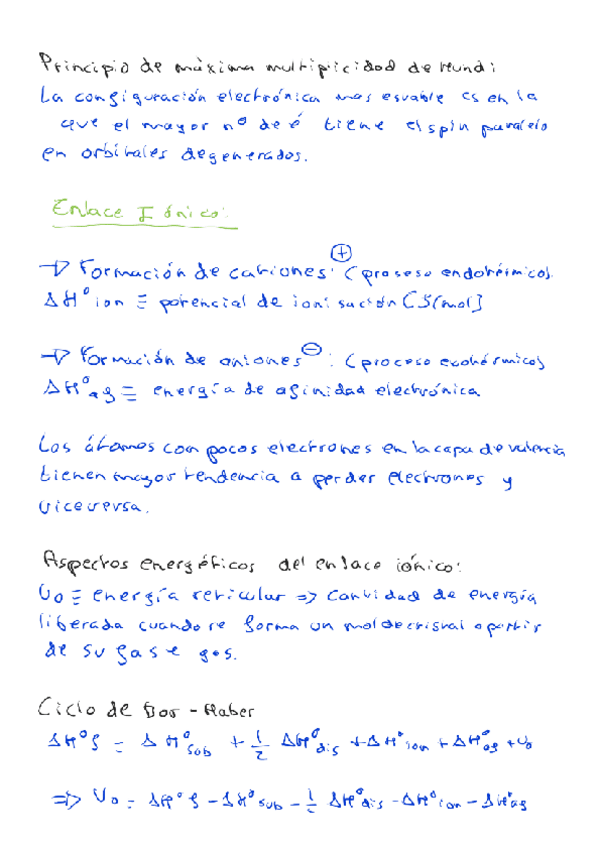 Principio de máxima multiplicidad de Hund:
La configuración electrónica mas estable es en la
que el mayor nº de é tiene el spin paralelo
en orbitales degenerados.
Enlace Iónico:
→ Formación de cationes ⊕: (proseso endotérmico).
ΔH°ion ≡ potencial de ionisación [J/mol]
→ Formación de aniones ⊖: (proceso exotérmico)
ΔH°af ≡ energía de afinidad electrónica
Los átomos con pocos electrones en la capa de valencia
tienen mayor tendencia a perder electrones y
viceversa.
Aspectos energéticos del enlace iónico:
U₀ ≡ energía reticular => Cantidad de energía
liberada cuando se forma un mol de cristal a partir
de su fase gas.
Ciclo de Bor-Haber
ΔH°f = ΔH°sub + 1/2 ΔH°dis + ΔH°ion + ΔH°af + U₀
=> U₀ = ΔH°f - ΔH°sub - 1/2 ΔH°dis - ΔH°ion - ΔH°af